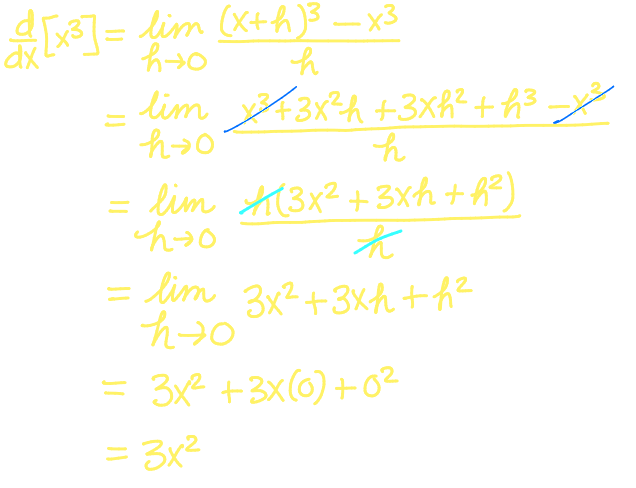 d/dx [x³] = lim h→0 ((x+h)³ − x³)/h
= lim h→0 (x³ + 3x²h + 3xh² + h³ − x³)/h
= lim h→0 h(3x² + 3xh + h²)/h
= lim h→0 3x² + 3xh + h²
= 3x² + 3x(0) + 0²
= 3x²